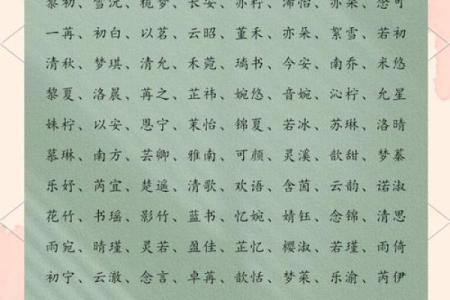 黎初、雪沉、栀梦、长安、亦柠、浠怡、亦朵、悠可
一苒、初白、以茗、云昭、董禾、亦朵、絮雪、若初
清秋、梦琪、清允、禾菀、瑀书、今安、南乔、米悠
黎夏、洛晨、苒之、芷祎、婉悠、音婉、沁柠、允星
姝柠、以安、恩宁、茉怡、锦夏、若冰、苏琳、洛晴
慕琳、南方、芸卿、雅南、可颜、灵溪、歆甜、梦蓁
乐妤、芮宜、楚遥、清歌、欢语、含茵、云韵、诺淑
花竹、书瑶、影竹、蓝书、忆婉、婧钰、念锦、清思
雨宛、晴瑾、灵若、盈佳、芷忆、樱淑、若瑾、雨倚
初宁、云澈、念言、卓苒、歆恬、梦莱、乐渝、芮伊